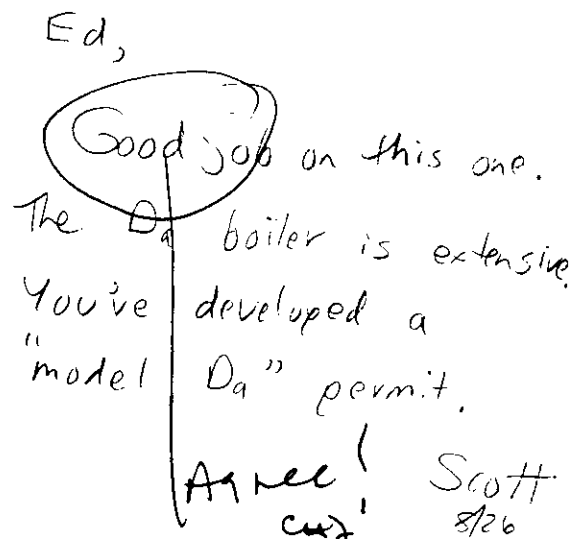 Ed,
Good job on this one.
The Da boiler is extensive.
You've developed a
"model Da" permit.
Agree!
Scott
8/26